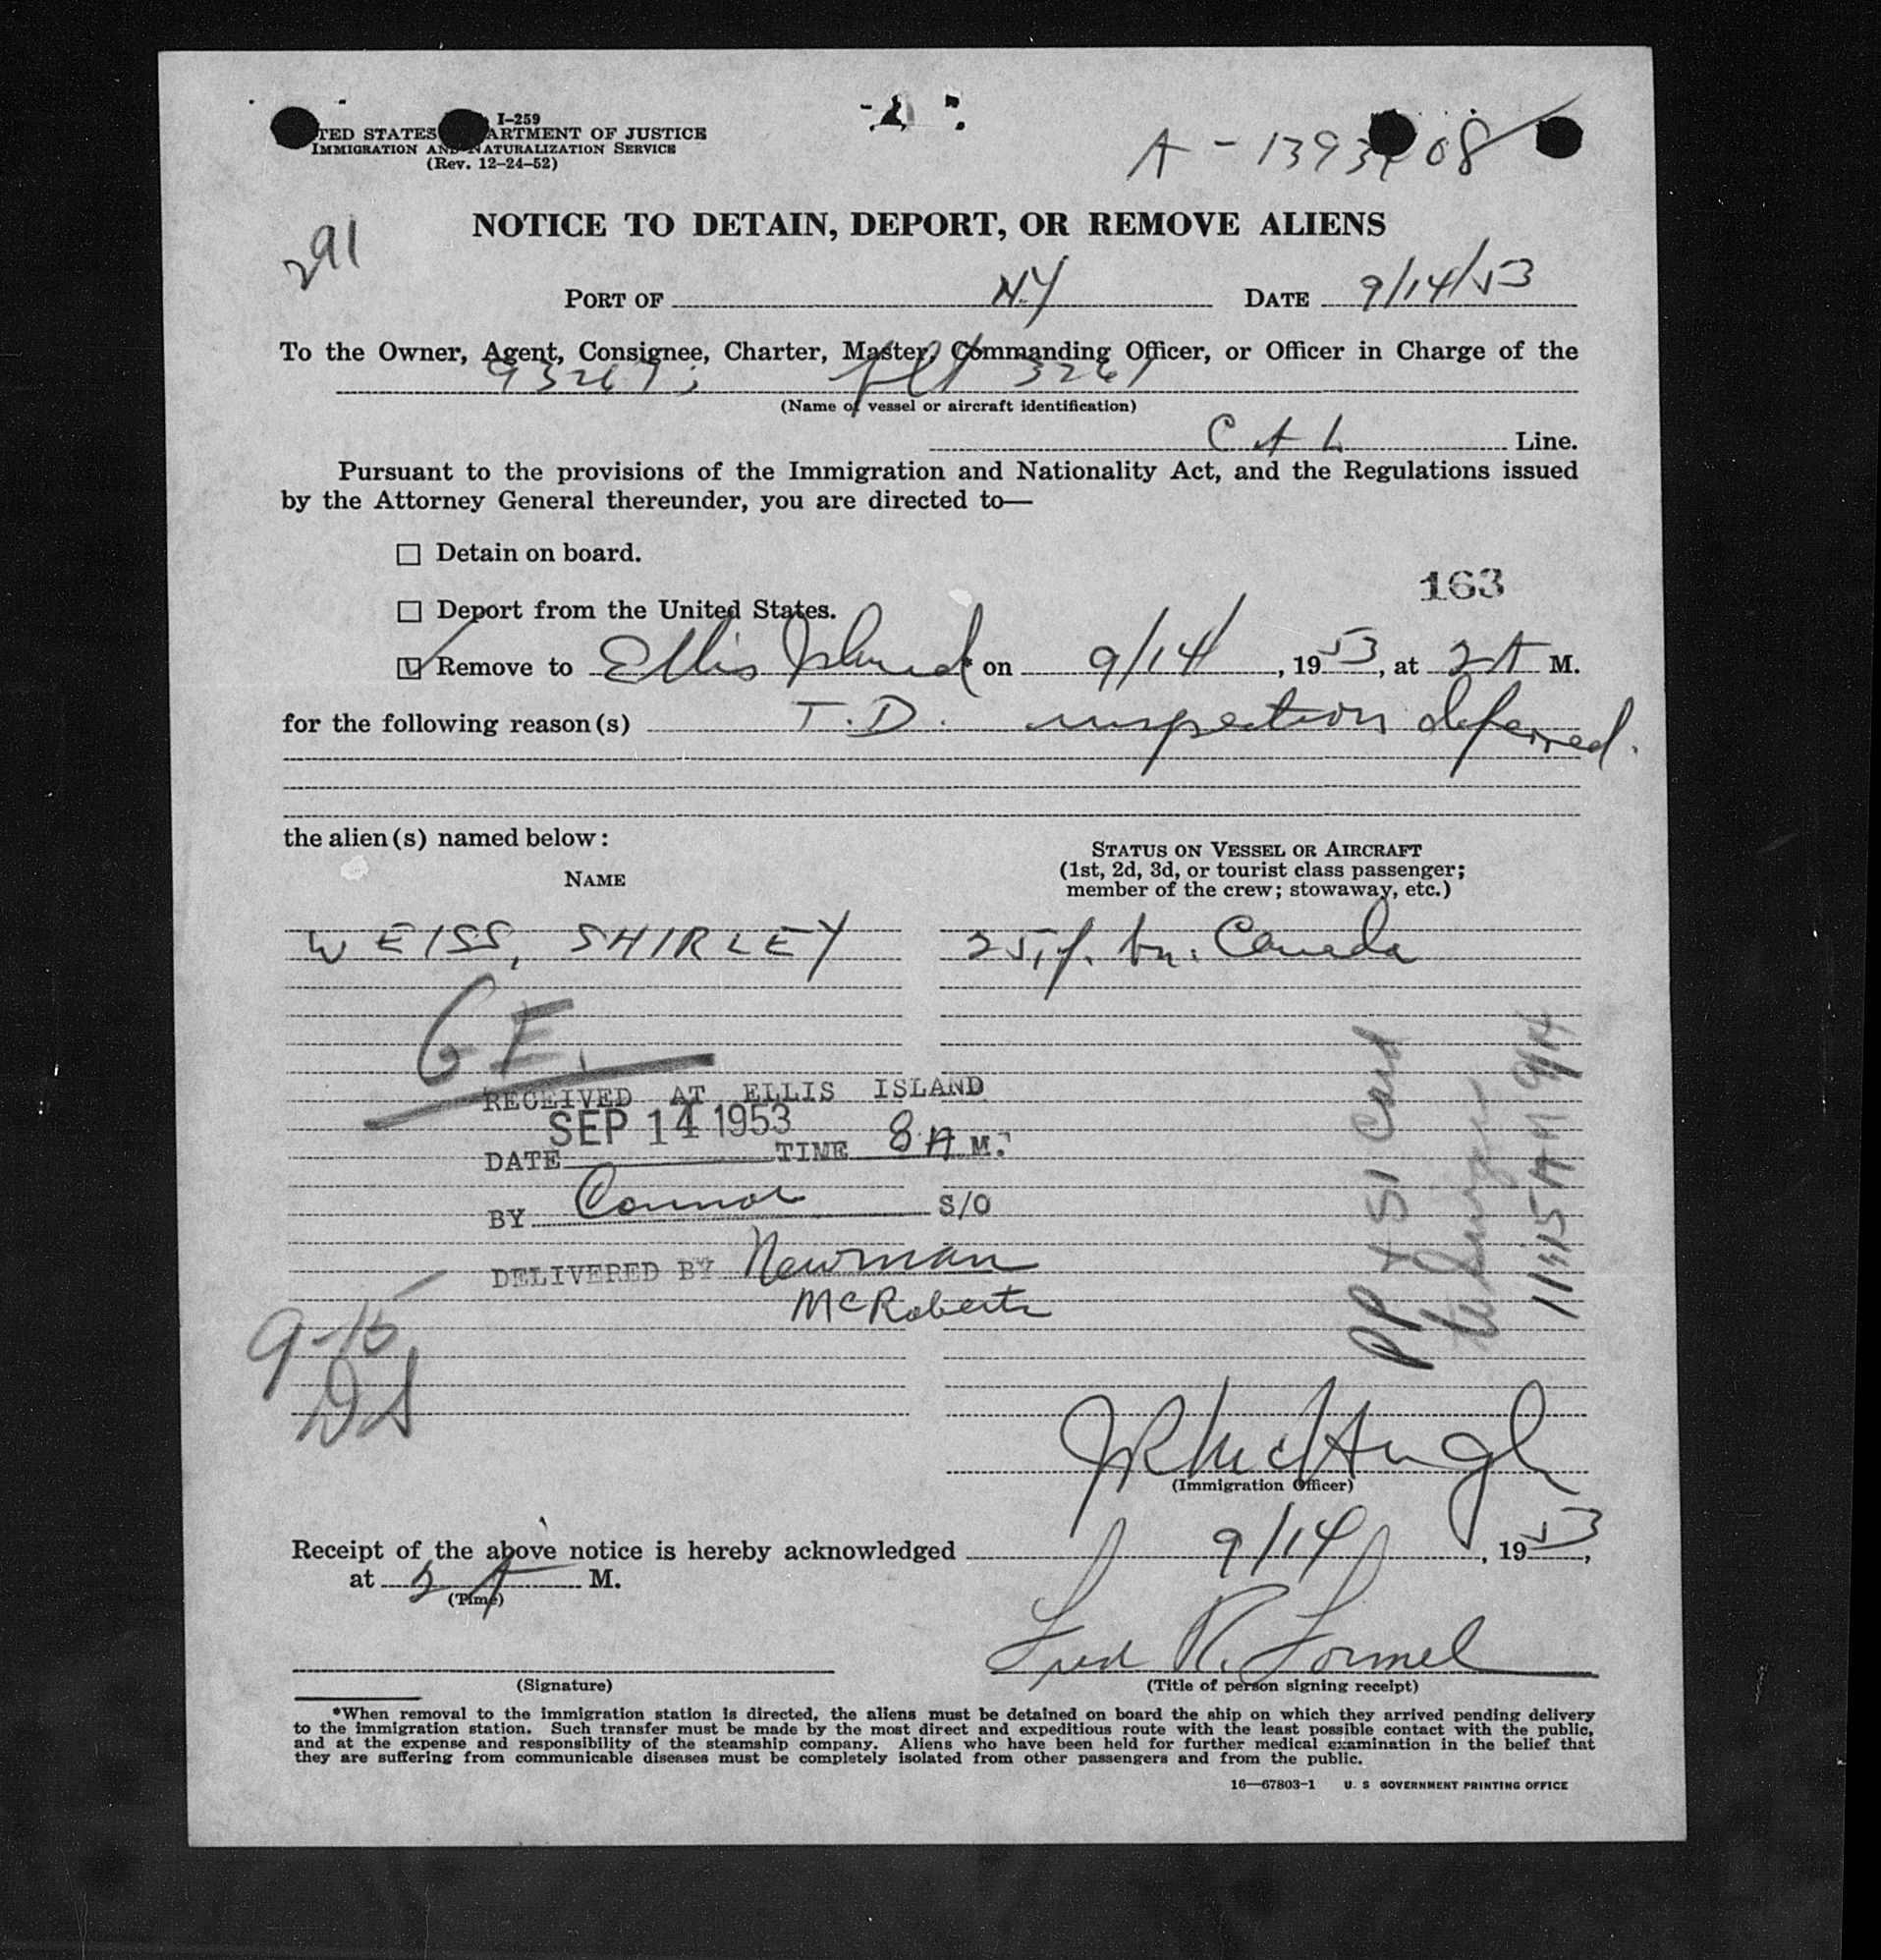 I-259
TED STATES ARTMENT OF JUSTICE
IMMIGRATION AND NATURALIZATION SERVICE
(Rev. 12-24-52)
A-1393 08
NOTICE TO DETAIN, DEPORT, OR REMOVE ALIENS
291
PORT OF N.Y DATE 9/14/53
To the Owner, Agent, Consignee, Charter, Master, Commanding Officer, or Officer in Charge of the
93267; flt 3267
(Name of vessel or aircraft identification)
C A L Line.
Pursuant to the provisions of the Immigration and Nationality Act, and the Regulations issued
by the Attorney General thereunder, you are directed to—
Detain on board.
163
Deport from the United States.
Remove to Ellis Island * on 9/14, 1953, at 2 A M.
for the following reason(s) T.D. inspection deferred.
the alien(s) named below:
STATUS ON VESSEL OR AIRCRAFT
(1st, 2d, 3d, or tourist class passenger;
member of the crew; stowaway, etc.)
NAME
WEISS, SHIRLEY 25, f. bn: Canada
RECEIVED AT ELLIS ISLAND
SEP 14 1953
DATE TIME 8 A M.
BY Connor S/O
DELIVERED BY Newman
McRoberts
PP + 51 Card
11:15 AM 9/14
9-15
DS
J R McHugh
(Immigration Officer)
Receipt of the above notice is hereby acknowledged 9/14, 1953,
at 2 A M.
(Time)
Fred R.
(Signature) (Title of person signing receipt)
*When removal to the immigration station is directed, the aliens must be detained on board the ship on which they arrived pending delivery
to the immigration station. Such transfer must be made by the most direct and expeditious route with the least possible contact with the public,
and at the expense and responsibility of the steamship company. Aliens who have been held for further medical examination in the belief that
they are suffering from communicable diseases must be completely isolated from other passengers and from the public.
16—67803-1 U. S GOVERNMENT PRINTING OFFICE